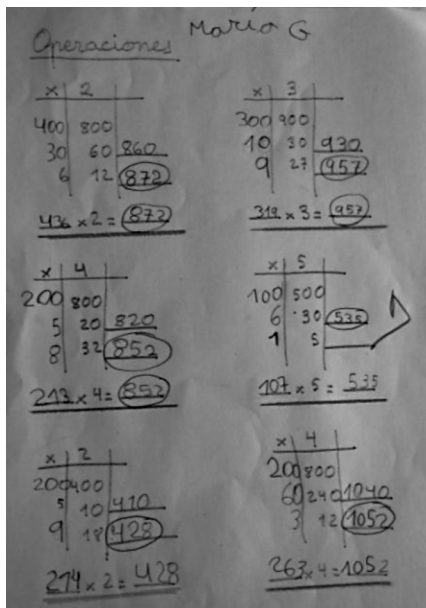 María G
Operaciones
x 2
400 800
30 60 860
6 12 872
436 x 2 = 872
x 3
300 900
10 30 930
9 27 957
319 x 3 = 957
x 4
200 800
5 20 820
8 32 852
213 x 4 = 852
x 5
100 500
6 30 535
1 5
107 x 5 = 535
x 2
200 400
5 10 410
9 18 428
214 x 2 = 428
x 4
200 800
60 240 1040
3 12 1052
263 x 4 = 1052